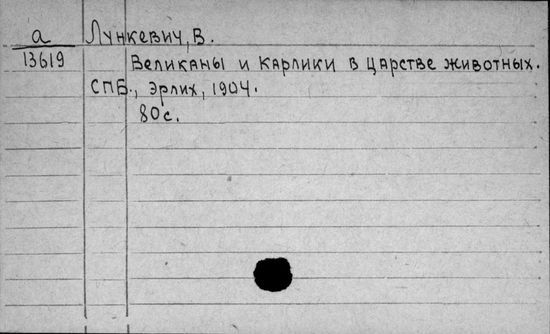 а Лункевич, В.
13619 Великаны и карлики в царстве животных.
СПБ., Эрлих, 1904.
80с.